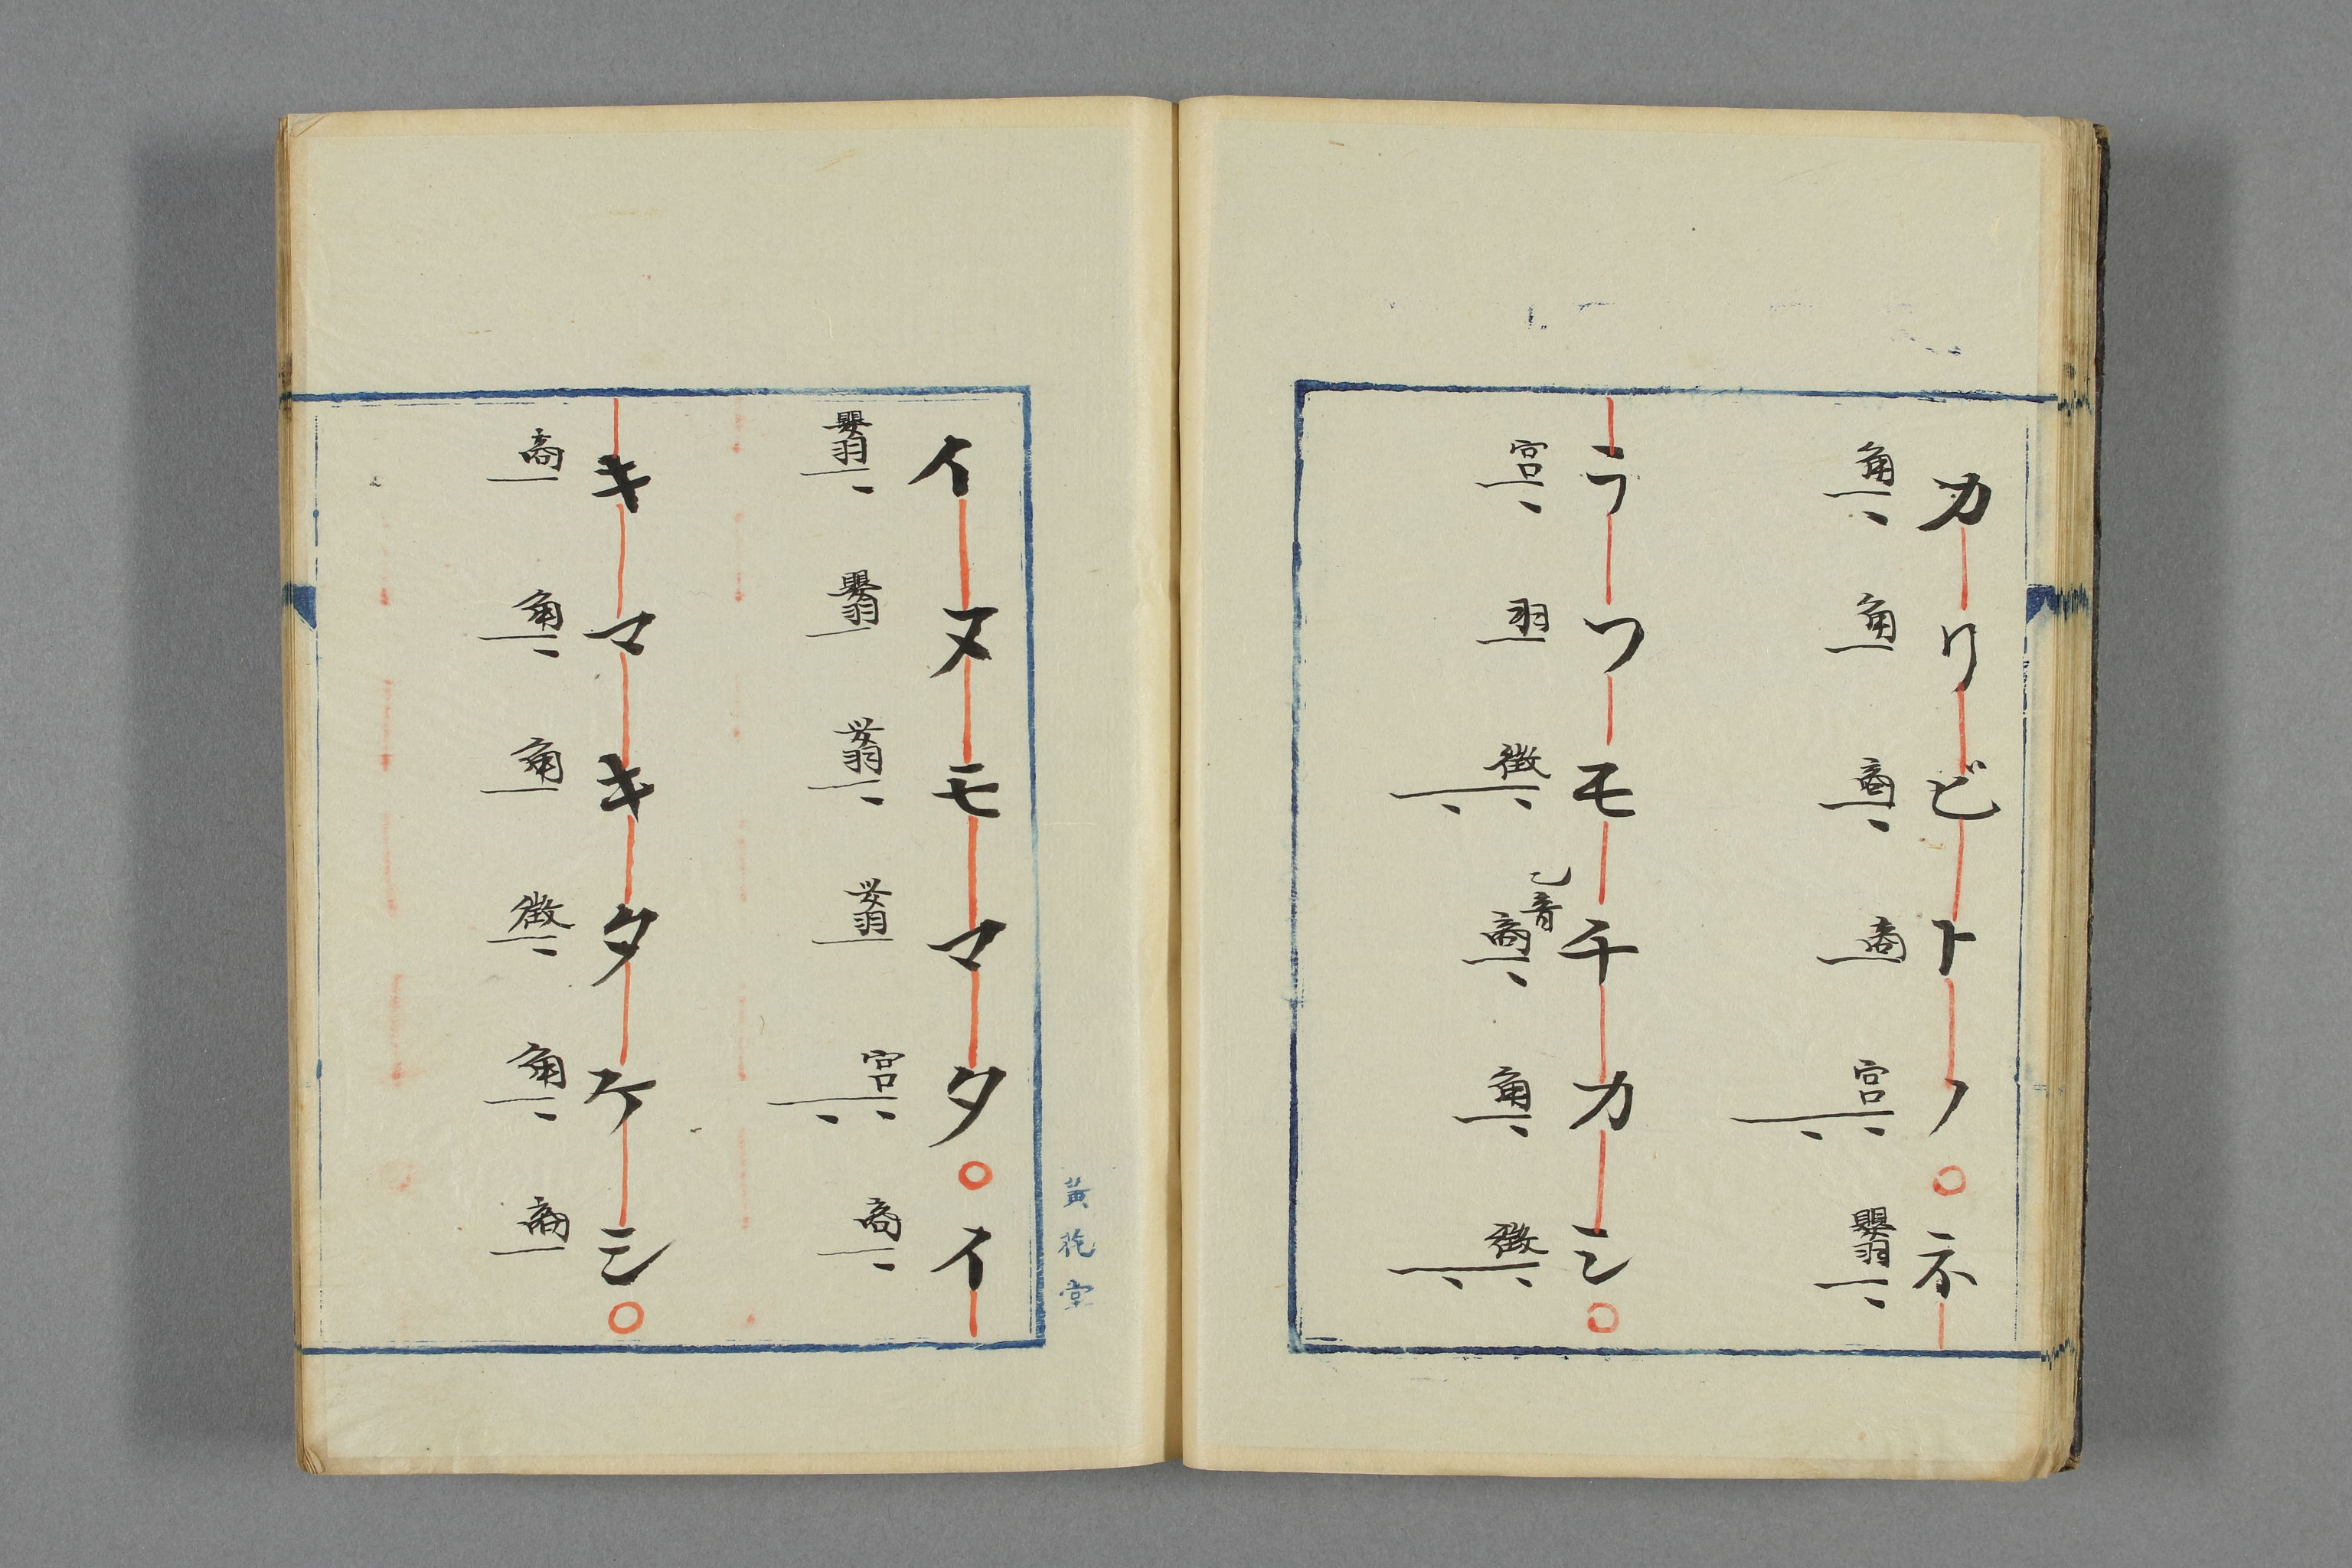 カリビトノ○ネ
角角商商宮嬰羽
ラフモチカシ○
乙音
宮羽徴商角徴
イヌモマタ○イ
嬰羽嬰羽嬰羽嬰羽宮商
キマキタケシ○
商角角徴角商